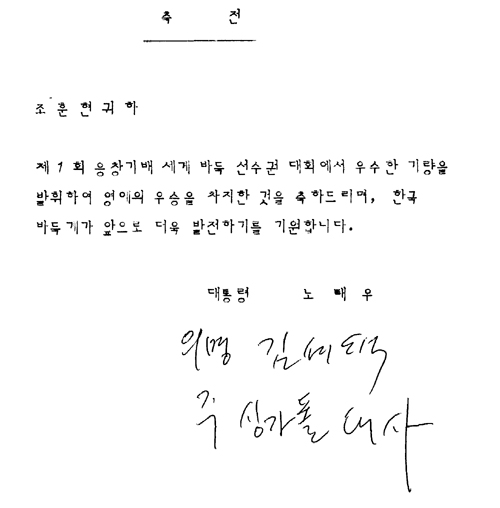 축 전
조 훈 현 귀 하
제 1 회 응창기배 세계 바둑 선수권 대회에서 우수한 기량을
발휘하여 영예의 우승을 차지한 것을 축하드리며, 한국
바둑계가 앞으로 더욱 발전하기를 기원합니다.
대통령 노 태 우
의명 김 택
주 싱가폴 대사